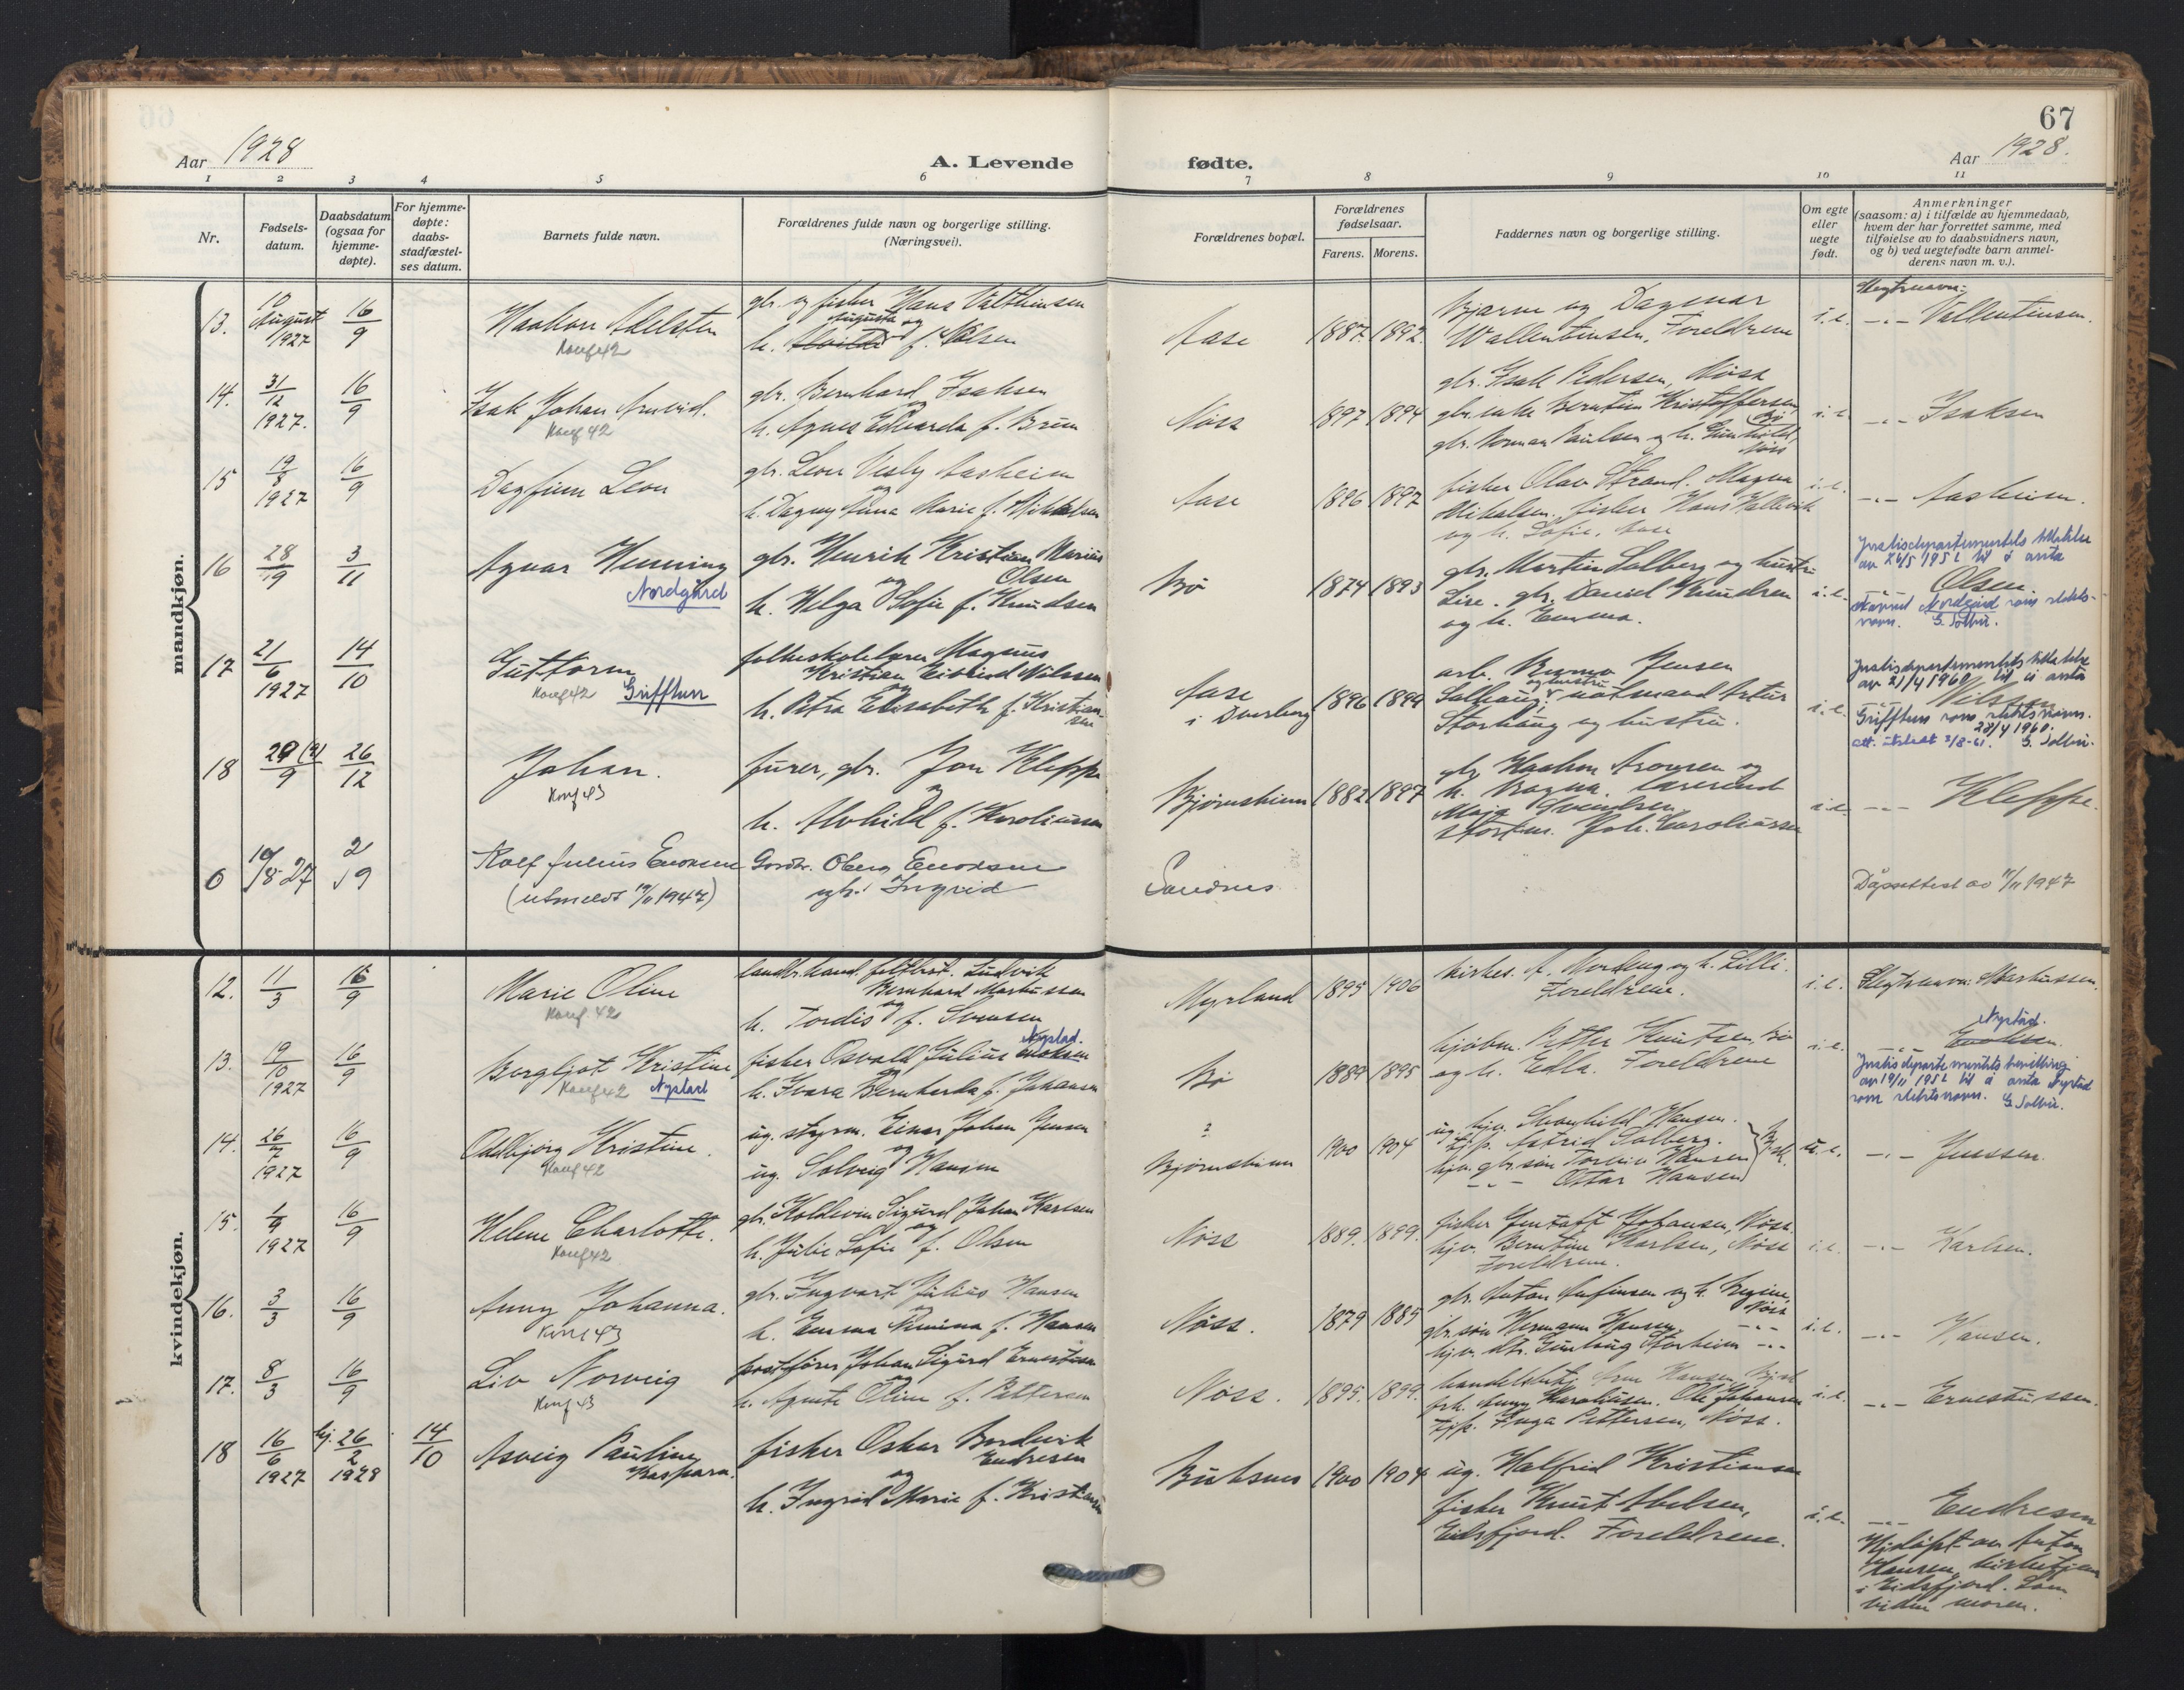 67
Aar 1928
A. Levende
fødte.
Aar 1928.
1 2 3 4 5 6 7 8 9 10 11
Nr.
Fødsels-
datum.
Daabsdatum
(ogsaa for
hjemme-
døpte).
For hjemme-
døpte:
daabs-
stadfæstel-
ses datum.
Barnets fulde navn.
Forældrenes fulde navn og borgerlige stilling.
(Næringsvei).
Forældrenes bopæl.
Forældrenes
fødselsaar.
Farens. Morens.
Faddernes navn og borgerlige stilling.
Om egte
eller
uegte
født.
Anmerkninger
(saasom: a) i tilfælde av hjemmedaab,
hvem der har forrettet samme, med
tilføielse av to daabsvidners navn,
og b) ved uegtefødte barn anmel-
derens navn m. v.).
mandkjøn.
13. 10 August 1927 16/9 Haakon Adelsten
Konf 42
gbr. og fisker Hans Valthinsen
Augusta og
h. f. Olsen
Aase 1887. 1892.
Bjarne og Dagmar
Wallentinsen, Foreldrene
i.e.
Slegtsnavn:
-"- Vallentinsen.
14. 31/12 1927. 16/9 Isak Johan Arnvid.
Konf 42
gbr. Bernhard Isaksen
og
h. Agnes Edvarda f. Bruun
Nöss 1897 1894
gbr. Isak Pedersen, Nöss
gbr. enke Berntine Kristoffersen,
Bö
gbr. Norman Paulsen og h. Gunhild,
Nöss
i.e. -"- Isaksen
15 19/8 1927 16/9 Dagfinn Leon
gbr. Leon Vesly Aasheim
og
h. Dagny Anna Marie f. Mikkelsen
Aase 1896 1897
fisker Olav Strand. Magna
Mikalsen. fisker Hans Hallevik
og h. Sofie, Aase
i.e. -"- Aasheim.
16 28/9 3/11 Agnar Henning
Nordgård
gbr. Henrik Kristian Marius
og Olsen
h. Helga Sofie f. Knudsen
Bö 1874 1893
gbr. Martin Solberg og hustru
Lise. gbr. Daniel Knudsen
og h. Emma.
i.e.
Justisdepartementets tillatelse
av 26/5 1952 til å anta
-"- Olsen.
navnet Nordgård som slekts-
navn. G. Solbu.
17 21/6 1927 14/10 Guttorm
Konf 42 Grifftun
folkeskolelærer Magnus
Kristian Eivind Nilssen
og
h. Petra Elisabeth f. Kristian-
sen
Aase
i Dverberg 1896 1899
arb. Bruno Jensen
og hustru
Solhaug, notmand Artur
Storhaug og hustru.
i.e.
Justisdepartementets tillatelse
av 21/4 1960 til å anta
-"- Nilssen
Grifftun som slektsnavn.
28/4 1960.
att. utstedt 3/8-61. G. Solbu.
18 29(?)/9 26/12 Johan.
Konf 43
furer, gbr. Jon Kleppe
og
h. Alvhild f. Karoliussen
Bjørnskinn 1882 1897
gbr. Haakon Aronsen og
h. Ragna. lærerinde
Maja Svendsen
Joh. Caroliussen
i.e. -"- Kleppe.
0 19/8-27 2/9 Rolf Julius Enoksen
(utmeldt 11/11 1947)
Gbr. Oberg Enoksen
og h. Ingrid
Sandnes
Dåpsattest av 11/11 1947
kvindekjøn.
12. 11/3 16/9 Marie Oline
Konf. 42
landbr.kand. feltbest. Ludvik
Bernhard Markussen
og
h. Tordis f. Svensen
Myrland 1895 1906
kirkes. A. Nordeng og h. Lilli.
Foreldrene.
i.e. Slegtsnavn: Markussen.
13. 19/10 1927 16/9 Bergljot Kristine
Konf 42 Nystad
Nystad.
fisker Osvald Julius Enoksen
og
h. Ivara Bernharda f. Johansen
Bö 1889 1895
kjöbm. Petter Knutsen, Bö
og h. Edla. Foreldrene
i.e.
Nystad.
-"- Enoksen.
Justisdepartementets bevilling
av 19/11 1952 til å anta Nystad
som slektsnavn. G. Solbu.
14. 26/7 1927 16/9 Oddbjörg Kristine.
Konf 42
ug. styrm. Einar Johan Jensen
og
ug. Solveig Hansen
?
Bjørnskinn 1900 1904
ug. hjv. Svanhild Hansen.
tjp. Astrid Solberg.
hjv. gbr. søn Torleiv Hansen
-"- Ottar Hansen
u.e. -"- Jenssen.
15. 1/9 1927 16/9 Helene Charlotte.
Konf 42
gbr. Koldevin Sigurd Johan Karlsen
og
h. Julie Sofie f. Olsen
Nöss 1889. 1899.
fisker Gustaft Johansen, Nöss
hjv. Berntine Karlsen, Nöss
Foreldrene.
i.e. -"- Karlsen.
16. 3/3 16/9 Anny Johanna.
Konf 43
gbr. Ingvart Julius Hansen
og
h. Emma Nimina f. Hansen
Nöss. 1879 1885
gbr. Anton Anfinsen og h. Regine,
Nöss
gbr. søn Hermann Hansen -"-
hjv. dtr. Gunlaug Storheim -"-
i.e. -"- Hansen.
17. 8/3 16/9 Liv Norveig
Konf 43
postfører Johan Sigurd Ernestussen
og
h. Agnete Oline f. Pettersen
Nöss. 1895. 1899.
handelsbetj. Arne Hansen,
frk. Anny Karoliusen. Ole Johansen
tjp. Inga Pettersen, Nöss.
i.e. -"- Ernestussen.
18 16/6 1927 hj. 26/2 1928 14/10 Asveig Pauline
Kaspara.
fisker Oskar Bordevik
og Endresen
h. Ingrid Marie f. Kristiansen
Buksnes 1900 1904
ug. Halfrid Kristiansen
fisker Knut Abelsen,
Eidsfjord. Foreldrene.
i.e. -"- Endresen
Hjdöpt av Anton
Hansen, kirketjener
i Eidsfjord. Som
vidne moren.